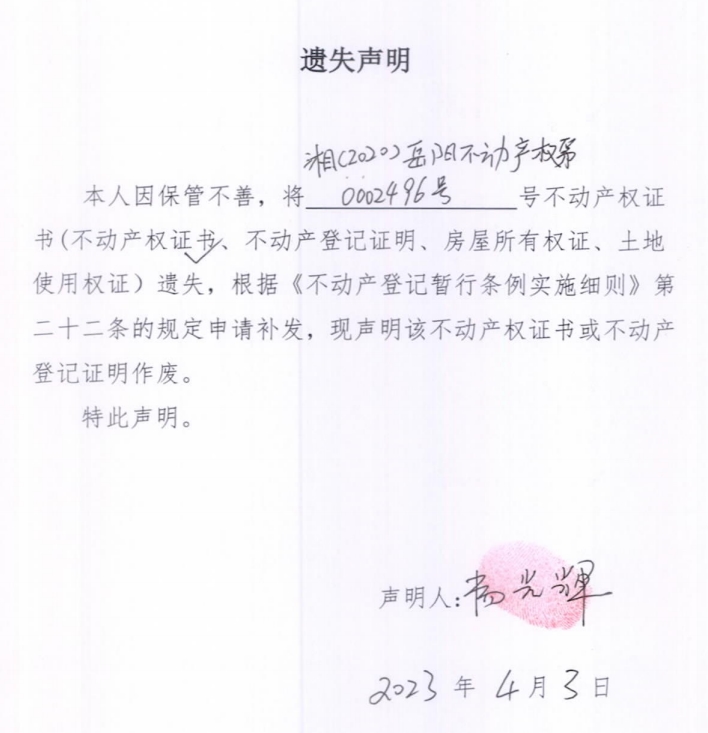 遗失声明
湘(2020)岳阳不动产权第
本人因保管不善，将0002496号号不动产权证
书(不动产权证书、不动产登记证明、房屋所有权证、土地
使用权证）遗失，根据《不动产登记暂行条例实施细则》第
二十二条的规定申请补发，现声明该不动产权证书或不动产
登记证明作废。
特此声明。
声明人：杨光辉
2023年4月3日